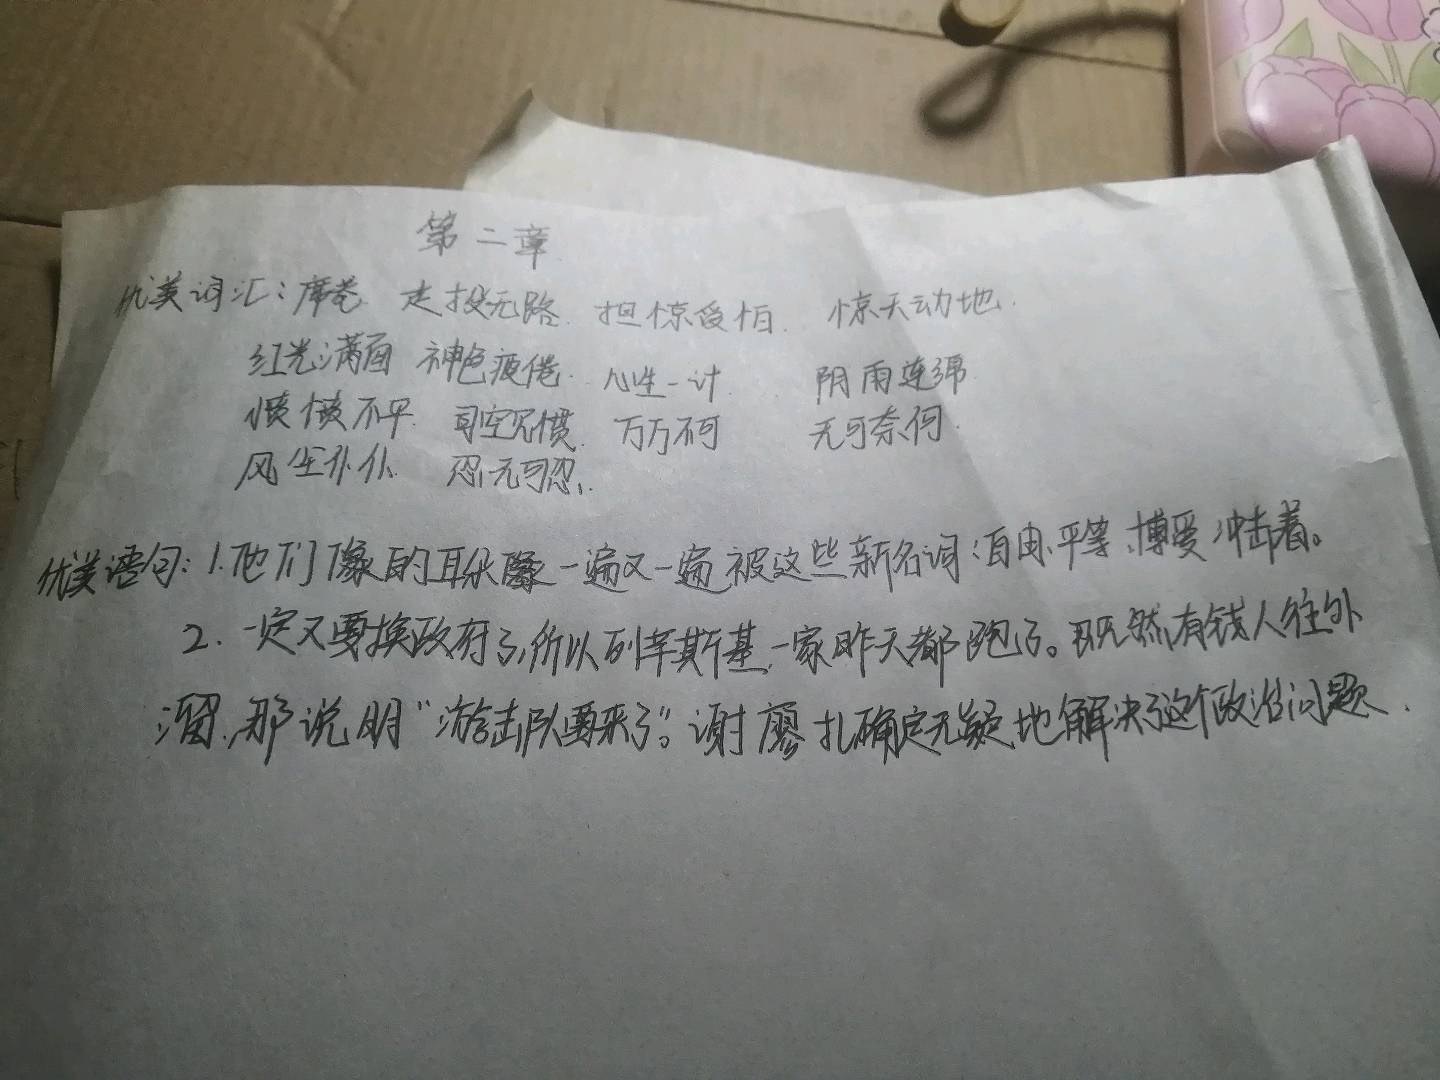 第二章
优美词汇：席卷 走投无路 担惊受怕 惊天动地
红光满面 神色疲倦 心生一计 阴雨连绵
愤愤不平 司空见惯 万万不可 无可奈何
风尘仆仆 忍无可忍
优美语句：1.他们的耳朵一遍又一遍被这些新名词：自由、平等、博爱冲击着。
2.一定又要换政府了，所以列辛斯基一家昨天都跑了。既然有钱人往外
溜，那说明“游击队要来了”。谢廖扎确定无疑地解决了这个政治问题.